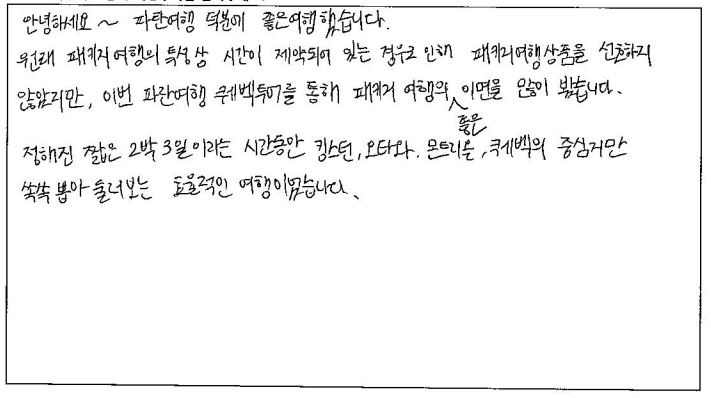 안녕하세요 ~ 파란여행 덕분에 좋은여행했습니다.
원래 패키지여행의 특성상 시간이 제약되어 있는 경우로 인해 패키지여행상품을 선호하지
않았지만, 이번 파란여행 퀘벡투어를 통해 패키지 여행의 좋은 이면을 많이 봤습니다.
정해진 짧은 2박 3일이라는 시간동안 킹스턴, 오타와, 몬트리올, 퀘벡의 중심지만
쏙쏙 뽑아 둘러보는 효율적인 여행이었습니다.